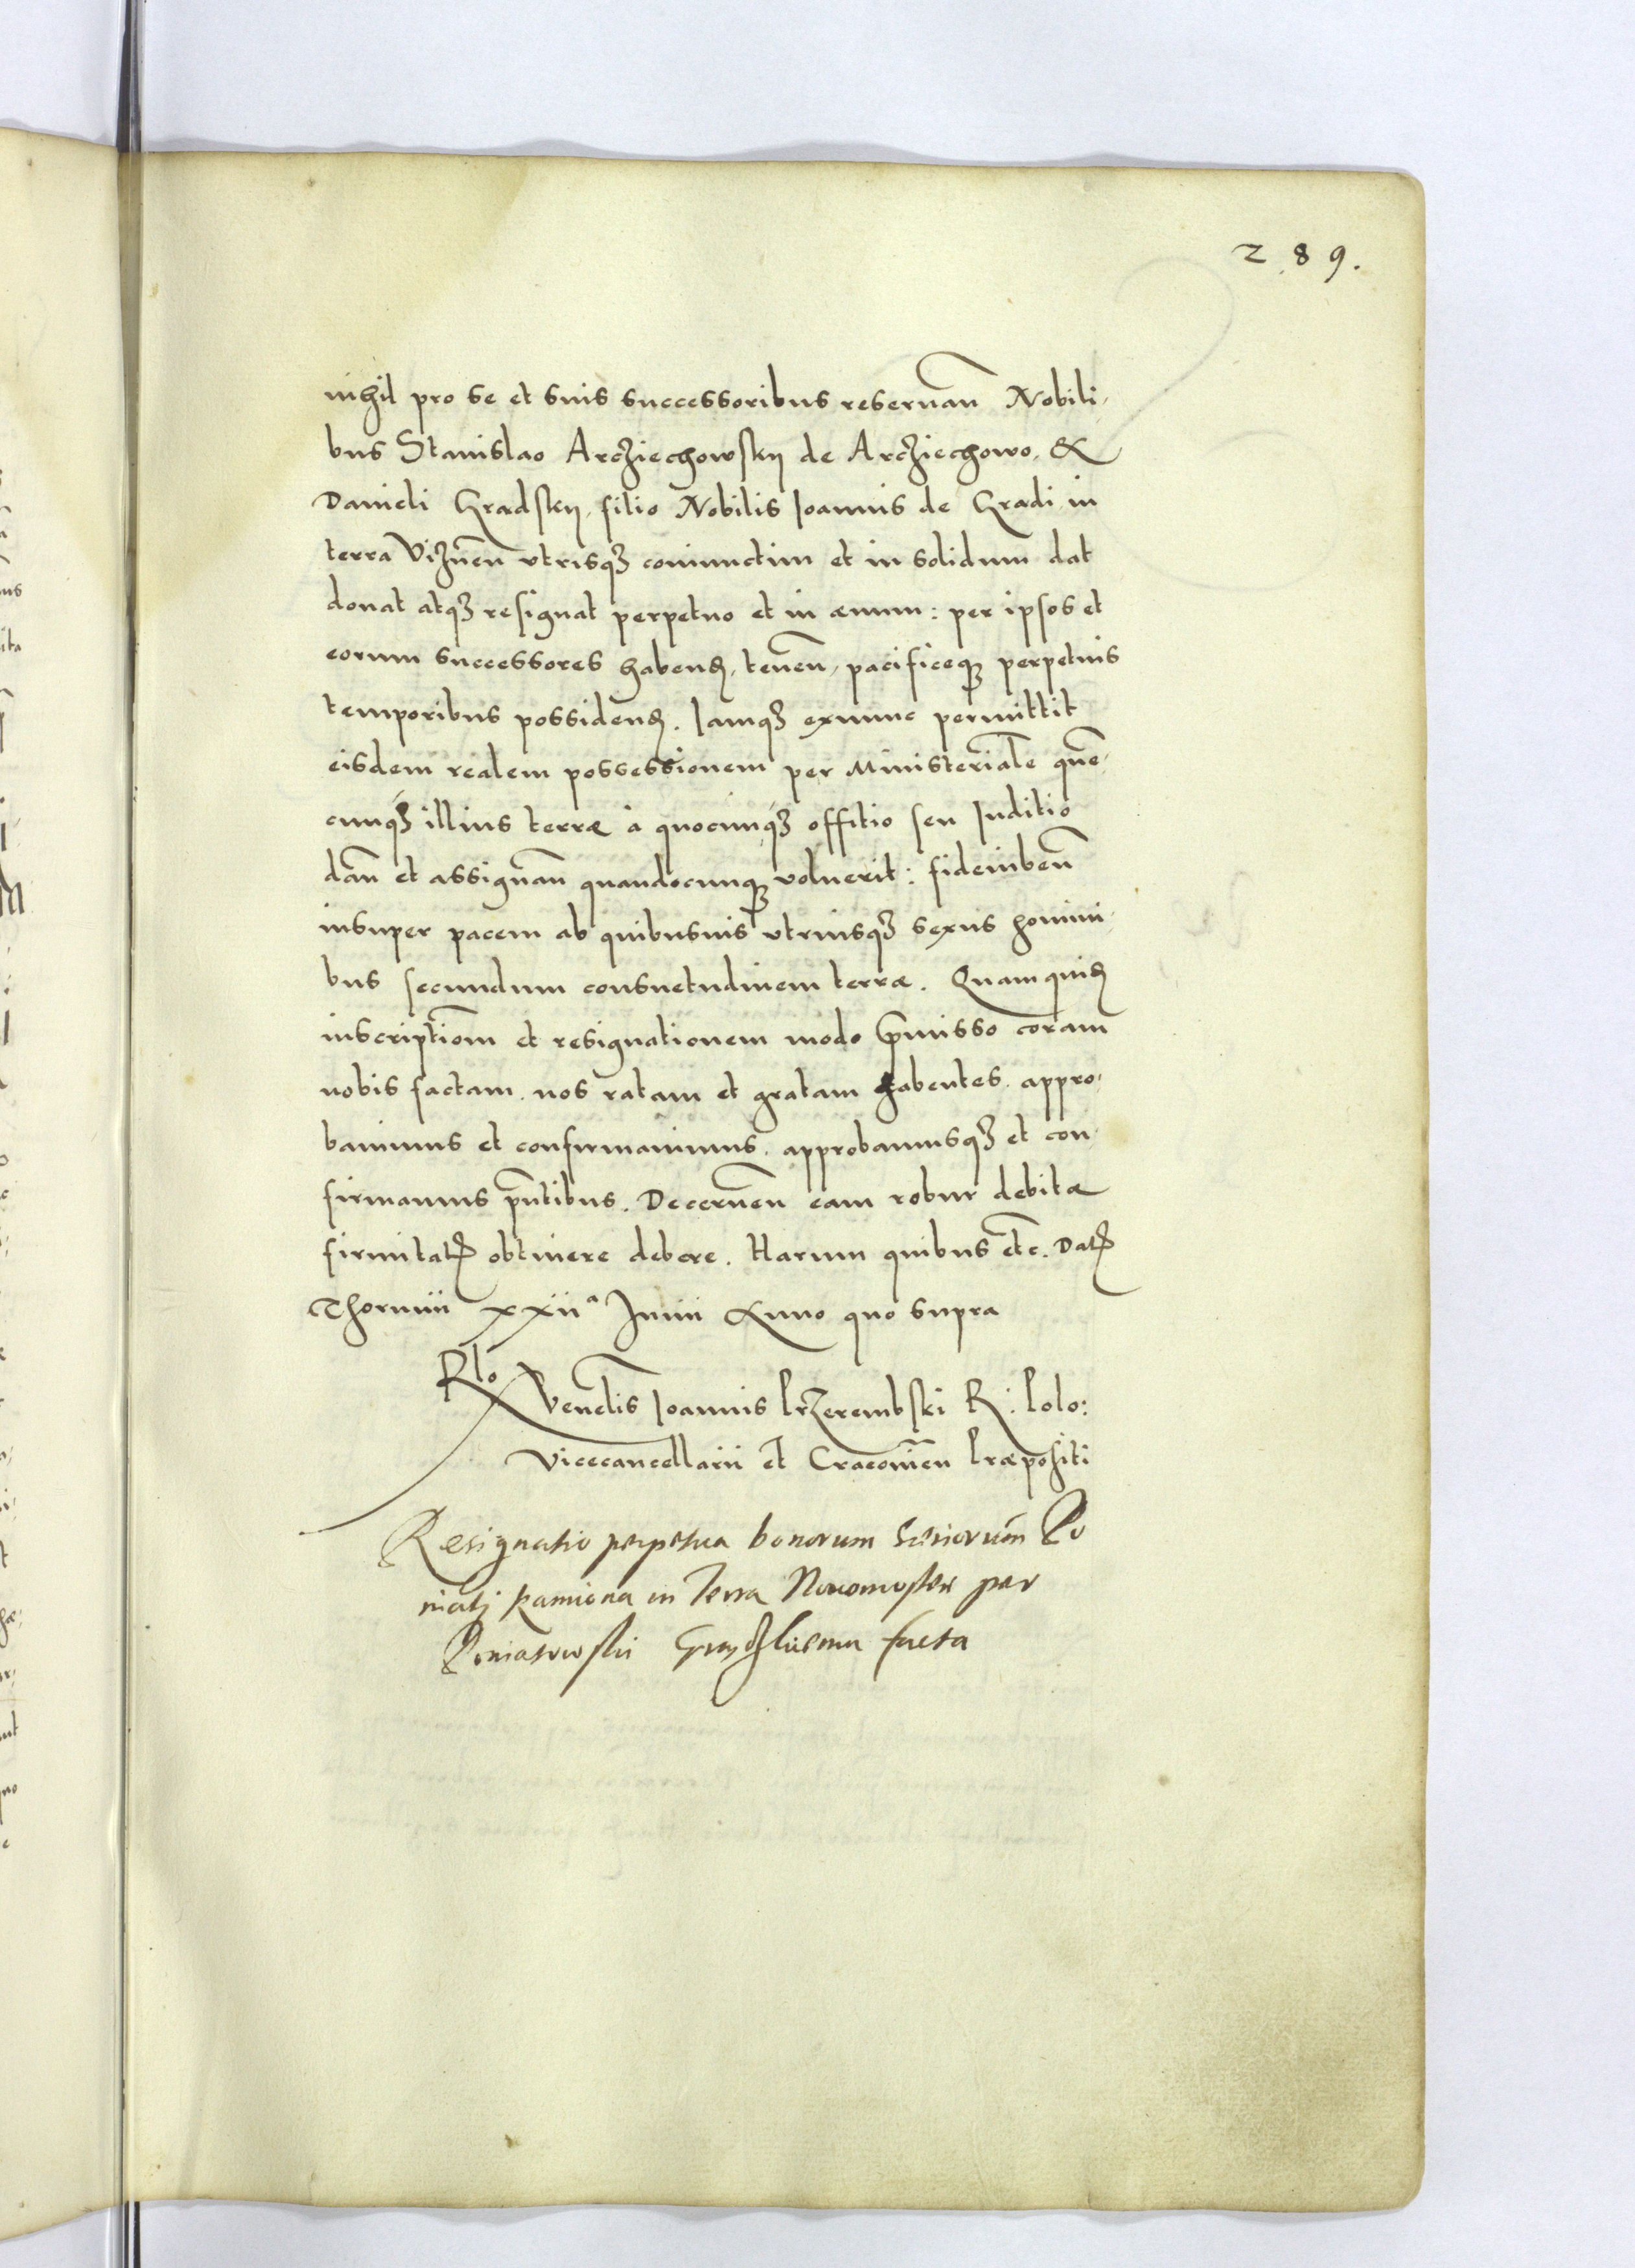 289.
nihil pro se et suis successoribus reseruan̄ Nobili,
bus Stanislao Arcziechowskij de Arcziechowo, &
Danieli Gradskij, filio Nobilis Joannis de Gradi in
terra Viznen̄ vtrisqꝫ coniunctim et in solidum dat
donat atqꝫ resignat perpetuo et in æuum: per ipsos et
eorum successores habenđ, tenen̄, pacificeqꝫ perpetuis
temporibus possidenđ. Jamqꝫ exnunc permittit
eisdem realem possessionem per Ministeriale quē,
cunqꝫ illius terræ à quocunqꝫ offitio seu Juditio
dan̄ et assignan̄ quandocunqꝫ voluerit: fideiuben̄
insuper pacem ab quibusuis vtriusqꝫ sexus homini,
bus secundum consuetudinem terræ. Quamquiđ
inscriptiōm et resignationem modo p̄misso coram
nobis factam, nos ratam et gratam habentes, appro,
bauimus et confirmauimus, approbamusqꝫ et con,
firmamus pn̄tibus. Decernen̄ eam robur debitæ
firmitatꝭ obtinere debere. Harum quibus etc̄. Datꝭ
Thorunii xxiiᵃ Junii Anno quo supra
Rlō Venēlis Joannis Przerembski R: Polo:
Vicecancellarii et Cracouien̄ Præpositi
Resignatio perpetua bonorum
Kamiona in Terra per
Poniatowskii facta